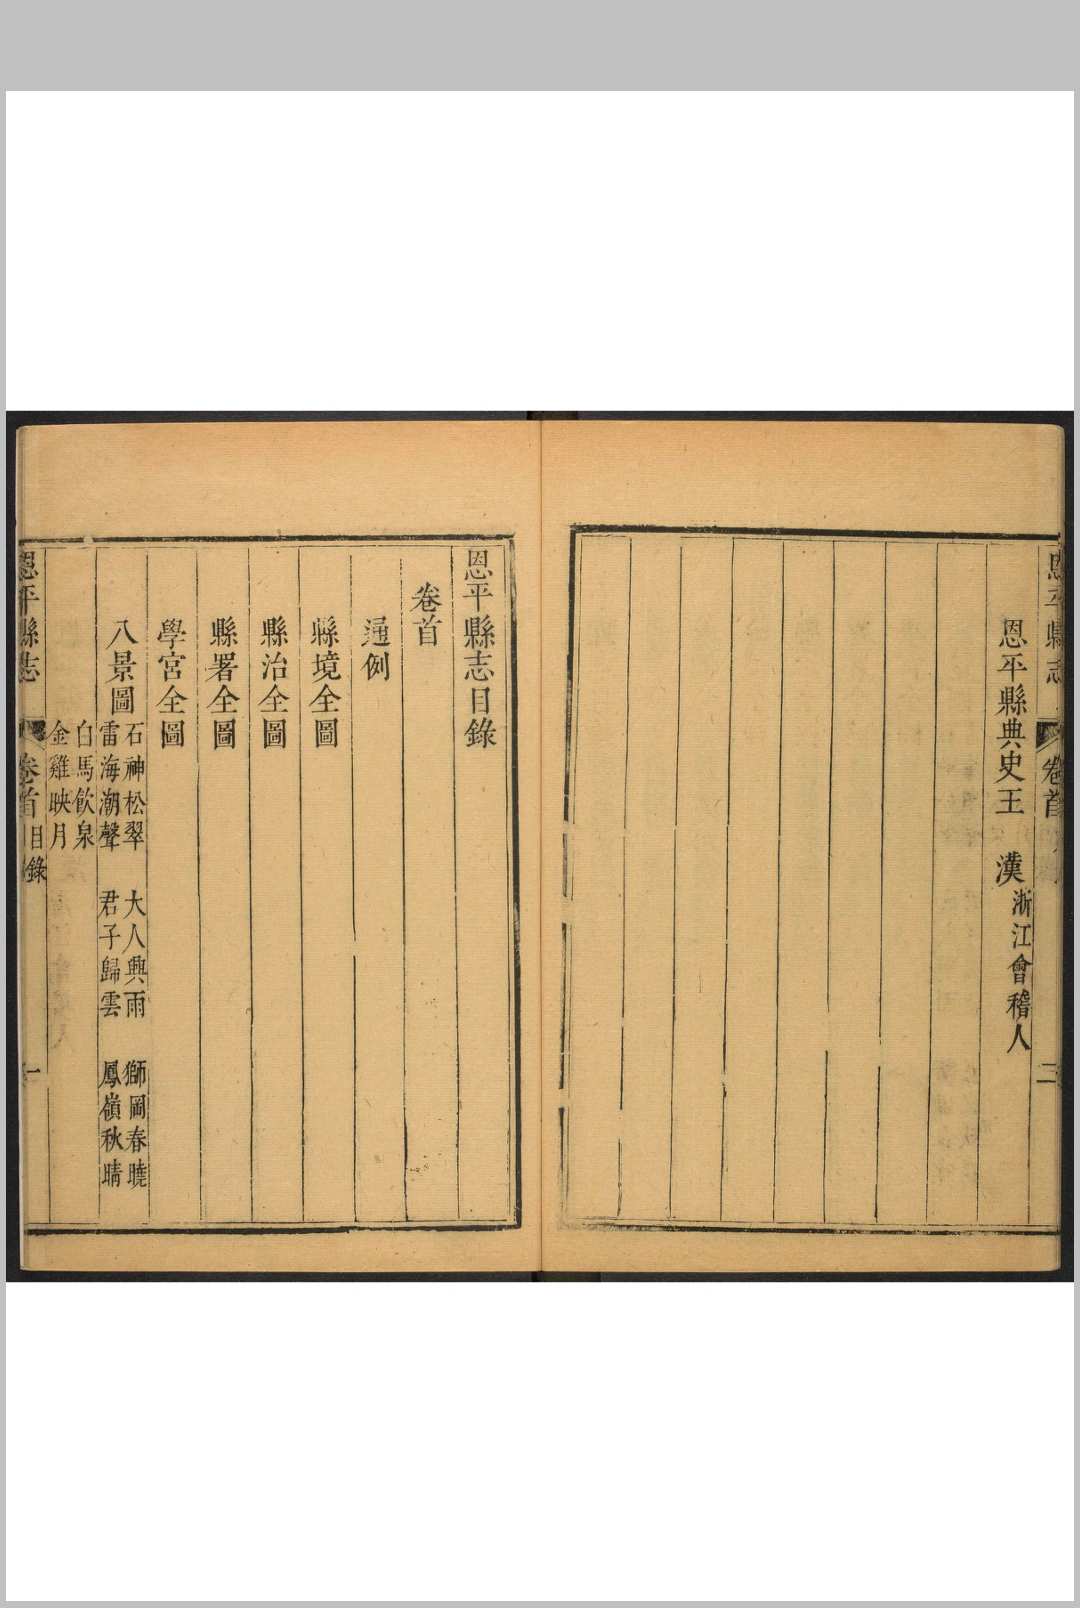 恩平縣志
卷首
三
恩平縣典史王 漢浙江會稽人
恩平縣志目錄
卷首
通例
縣境全圖
縣治全圖
縣署全圖
學宮全圖
八景圖
石神松翠 大人興雨 獅岡春曉
雷海潮聲 君子歸雲 鳳嶺秋晴
白馬飲泉
金雞映月
恩平縣志
卷首
目錄
一